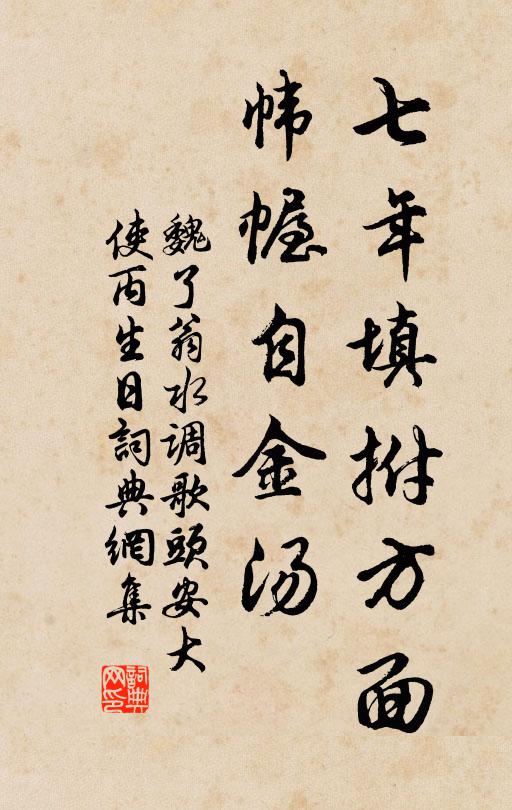 七年填拊方面
帏幄自金汤
魏了翁水调歌頭安大
使丙生日詞典網集
詞典网印